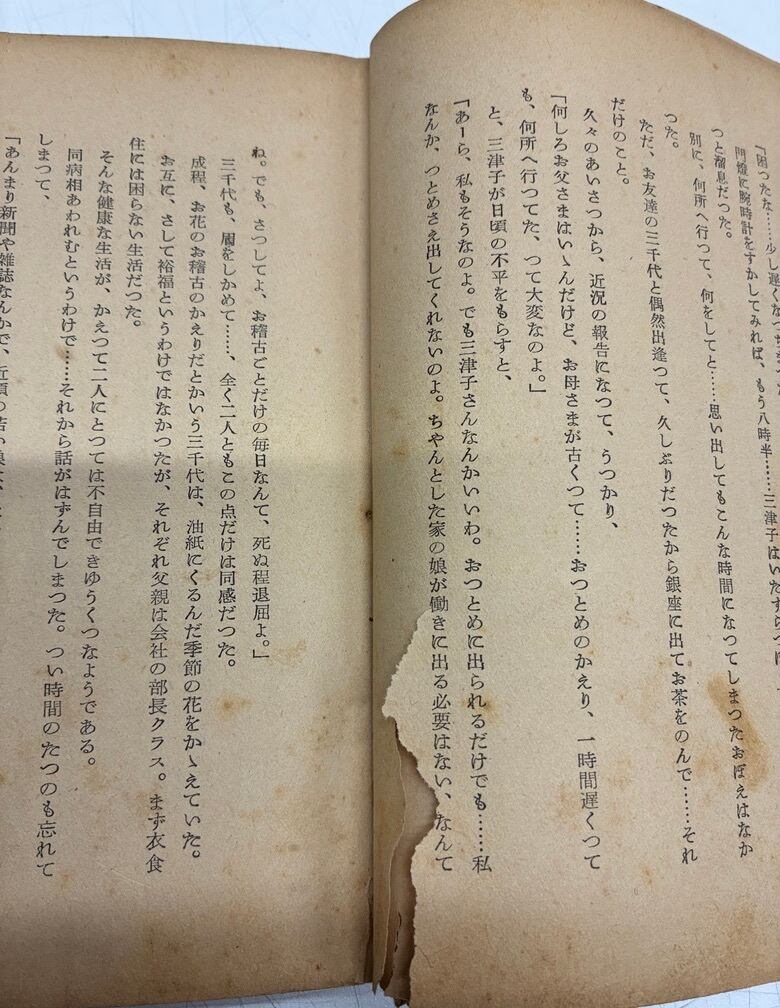 「困ったな……少し遅くな
門燈に腕時計をすかしてみれば、もう八時半……三津子はいたずらつけ
つと溜息だつた。
別に、何所へ行つて、何をしてと……思い出してもこんな時間になつてしまつたおぼえはなか
つた。
ただ、お友達の三千代と偶然出逢つて、久しぶりだつたから銀座に出てお茶をのんで……それ
だけのこと。
久々のあいさつから、近況の報告になつて、うつかり、
「何しろお父さまはいゝんだけど、お母さまが古くつて……おつとめのかえり、一時間遅くつて
も、何所へ行つてた、つて大変なのよ。」
と、三津子が日頃の不平をもらすと、
「あーら、私もそうなのよ。でも三津子さんなんかいいわ。おつとめに出られるだけでも……私
なんか、つとめさえ出してくれないのよ。ちやんとした家の娘が働きに出る必要はない、なんて
ね。でも、さつしてよ、お稽古ごとだけの毎日なんて、死ぬ程退屈よ。」
三千代も、眉をしかめて……、全く二人ともこの点だけは同感だつた。
成程、お花のお稽古のかえりだとかいう三千代は、油紙にくるんだ季節の花をかゝえていた。
お互に、さして裕福というわけではなかつたが、それぞれ父親は会社の部長クラス。まず衣食
住には困らない生活だつた。
そんな健康な生活が、かえつて二人にとつては不自由できゆうくつなようである。
同病相あわれむというわけで……それから話がはずんでしまつた。つい時間のたつのも忘れて
しまつて、
「あんまり新聞や雑誌なんかで、近頃の若い娘は、